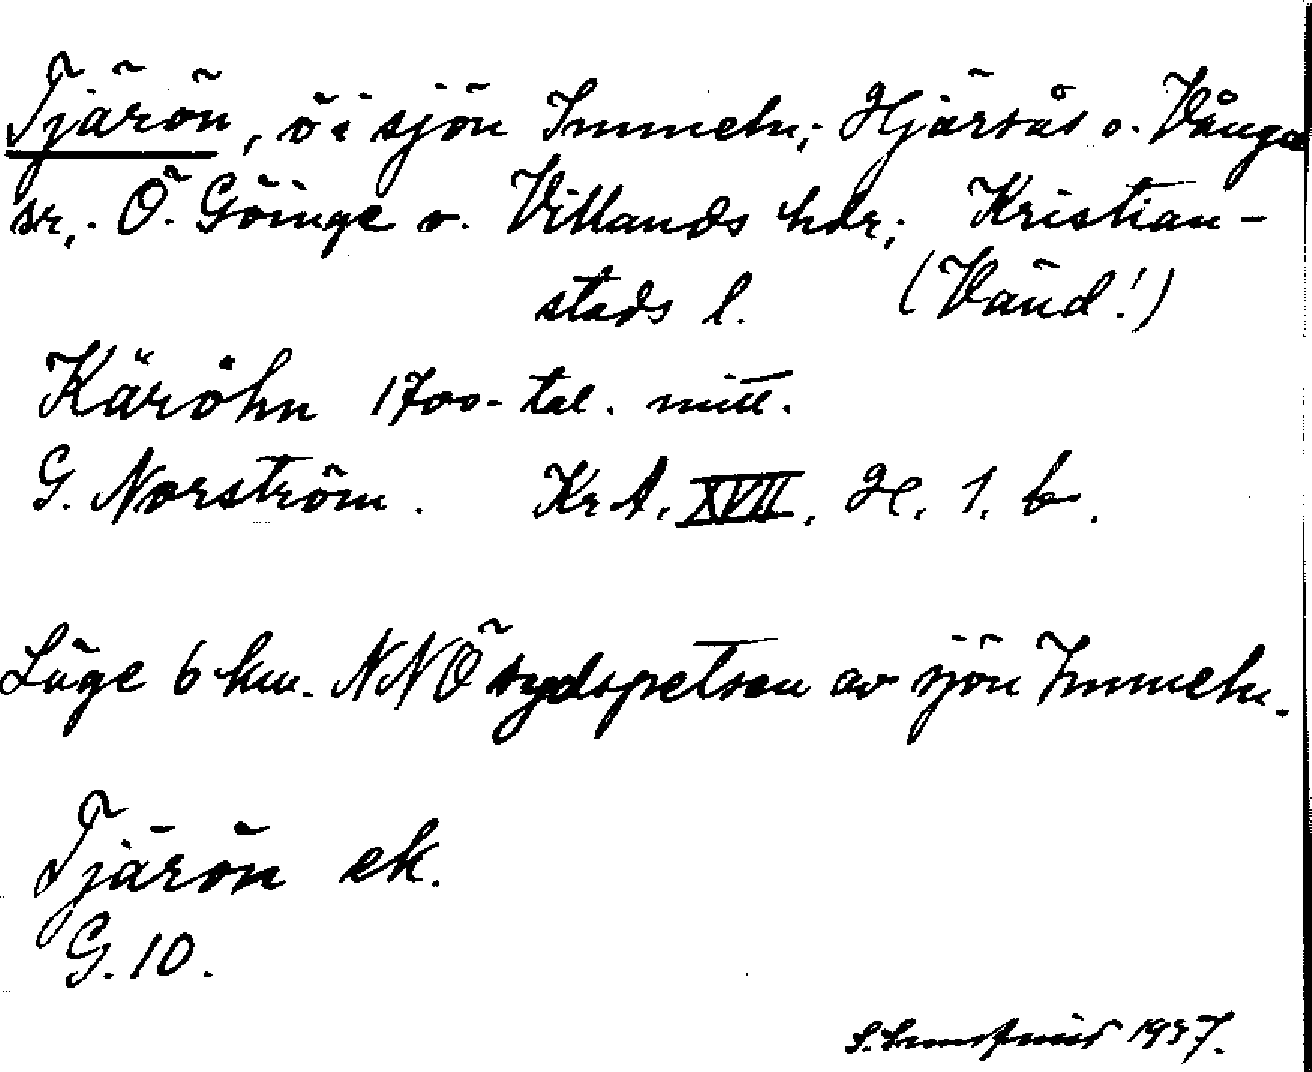 Tjärön, ö i sjön Immeln; Hjärsås o. Vånga
sr, Ö. Göinge o. Villands hdr; Kristian-
stads l. (Vänd!)
Käröhn 1700-tal. mitt.
G. Norström. KrA. XVII. H. 1. b.
Läge 6 km. NNÖ sydspetsen av sjön Immeln.
Tjärön ek.
G. 10.
1937.